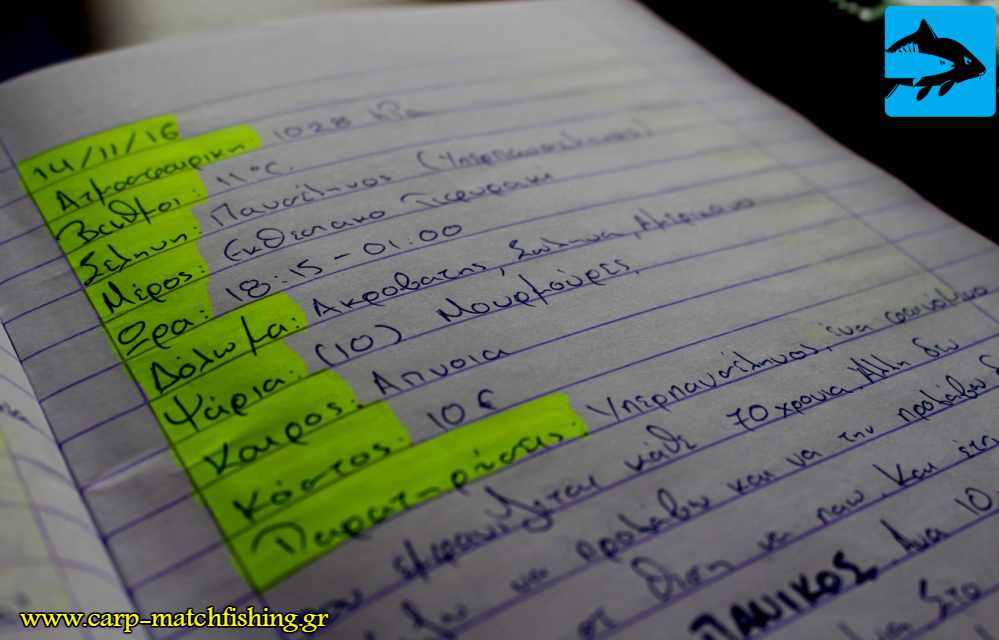 14/11/16
Ατμοσφαιρική 1028 hPa
Βαθμοί: 11°C.
Σελήνη: Πανσέληνος (Υπερπανσέληνος)
Μέρος: Εκθεσιακό Γεφυράκι
Ώρα: 18:15 - 01:00
Δόλωμα: Ακροβάτης, Σωλήνα, Αμερικάνο
Ψάρια: (10) Μουρμούρες.
Καιρος: Απνοια
Κόστος: 10€
Παρατηρήσεις: Υπερπανσέληνος, ένα φαινόμενο
που εμφανίζεται κάθε 70 χρονια. Αλλη δεν
να προλάβω και να την προλάβω δ
σε θέση να παω. Και έτσι
ΠΑΝΙΚΟΣ. Ανα 10
Στο
www.carp-matchfishing.gr